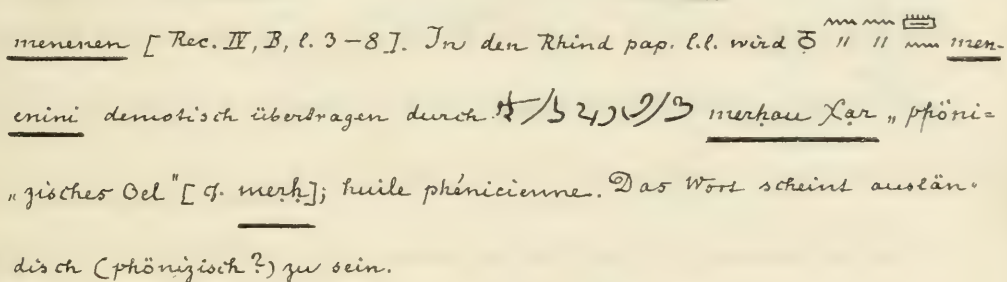 menenen [Rec. IV, B, l. 3-8]. In den Rhind pap. l.l. wird 〃 〃 men-
enini demotisch übertragen durch merḥau Χar „phöni=
„zisches Oel" [cf. merḥ]; huile phénicienne. Das Wort scheint auslän-
disch (phönizisch?) zu sein.